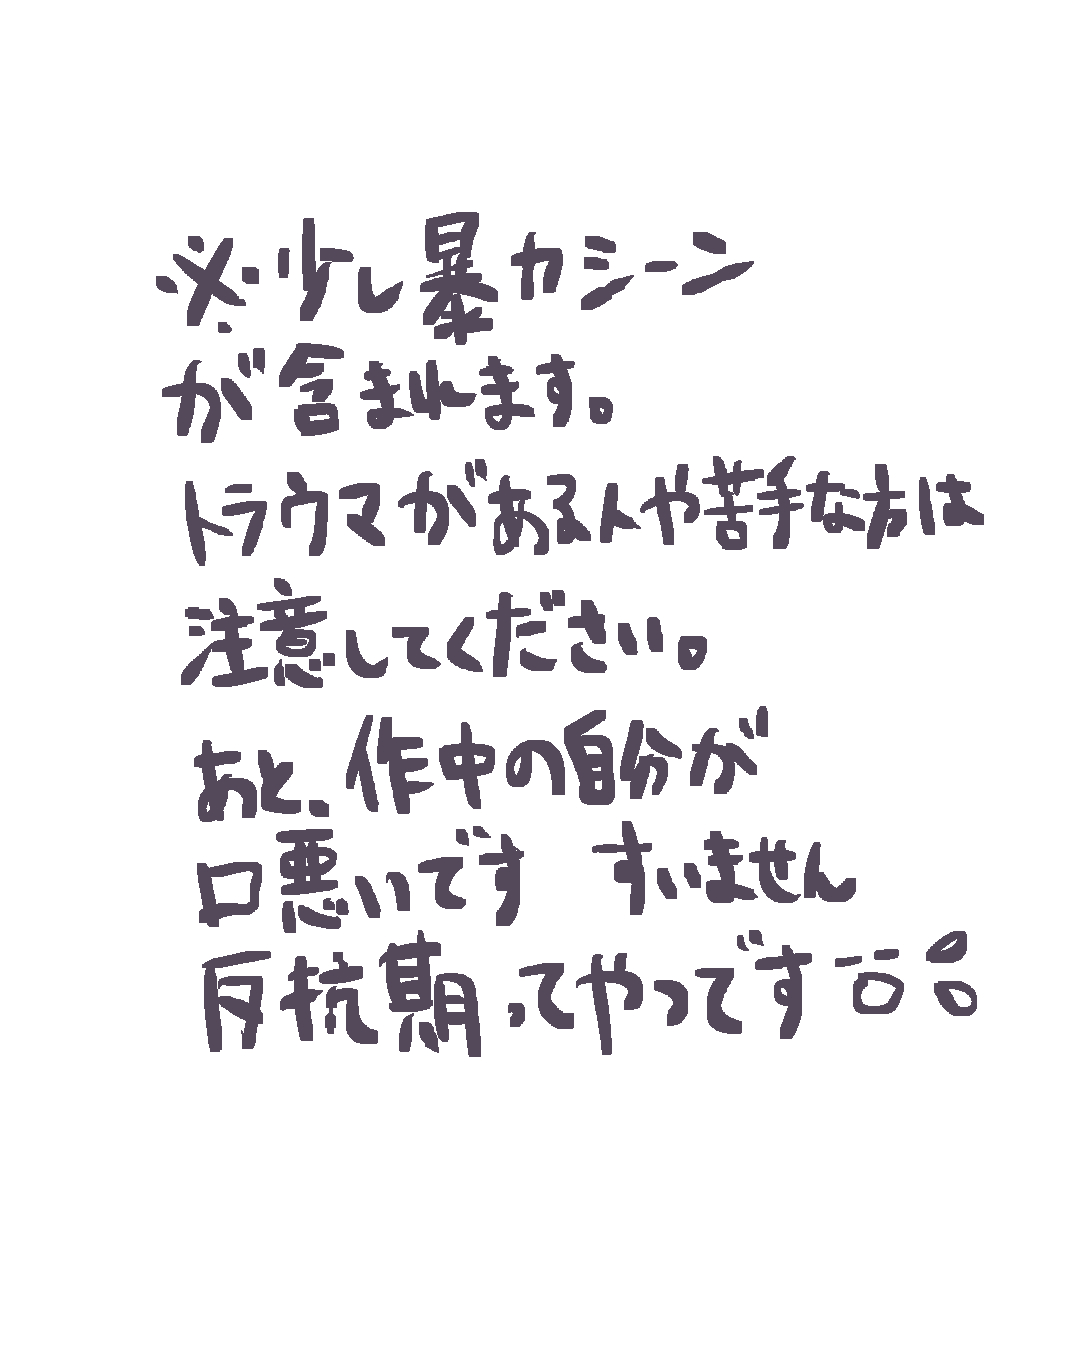 ※少し暴力シーン
が含まれます。
トラウマがある人や苦手な方は
注意してください。
あと、作中の自分が
口悪いです すいません
反抗期ってやつです